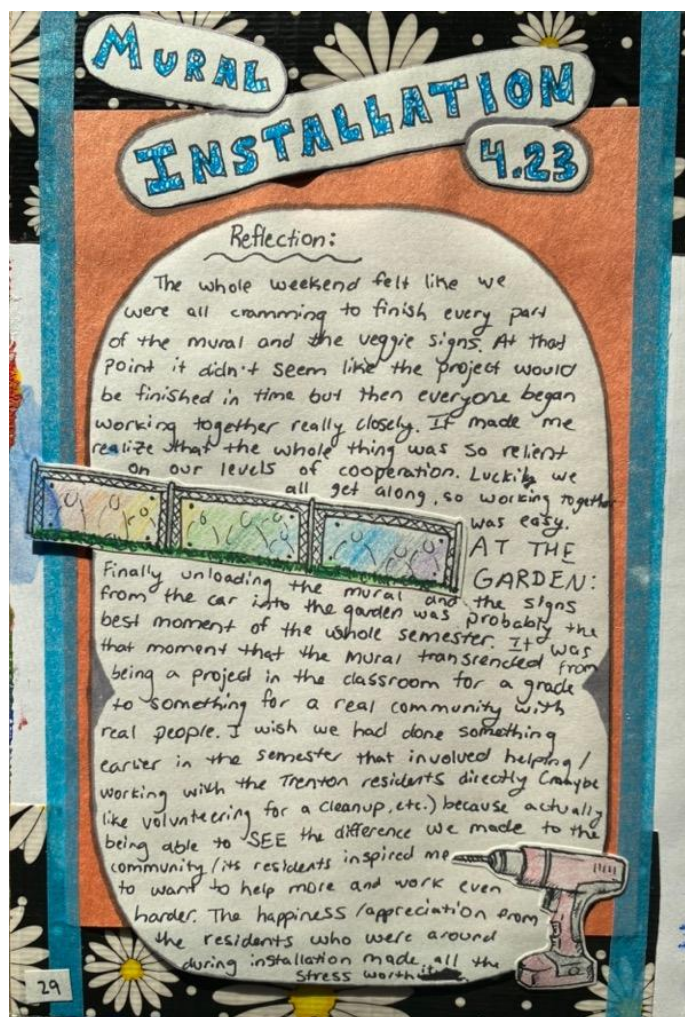 MURAL
INSTALLATION
4.23
Reflection:
The whole weekend felt like we
were all cramming to finish every part
of the mural and the veggie signs. At that
point it didn't seem like the project would
be finished in time but then everyone began
working together really closely. It made me
realize that the whole thing was so relient
on our levels of cooperation. Luckily we
all get along, so working together
was easy.
AT THE
GARDEN:
Finally unloading the mural and the signs
from the car into the garden was probably the
best moment of the whole semester. It was
that moment that the mural transcended from
being a project in the classroom for a grade
to something for a real community with
real people. I wish we had done something
earlier in the semester that involved helping/
working with the Trenton residents directly (maybe
like volunteering for a cleanup, etc.) because actually
being able to SEE the difference we made to the
community/its residents inspired me
to want to help more and work even
harder. The happiness/appreciation from
the residents who were around
during installation made all the
stress worth it
29